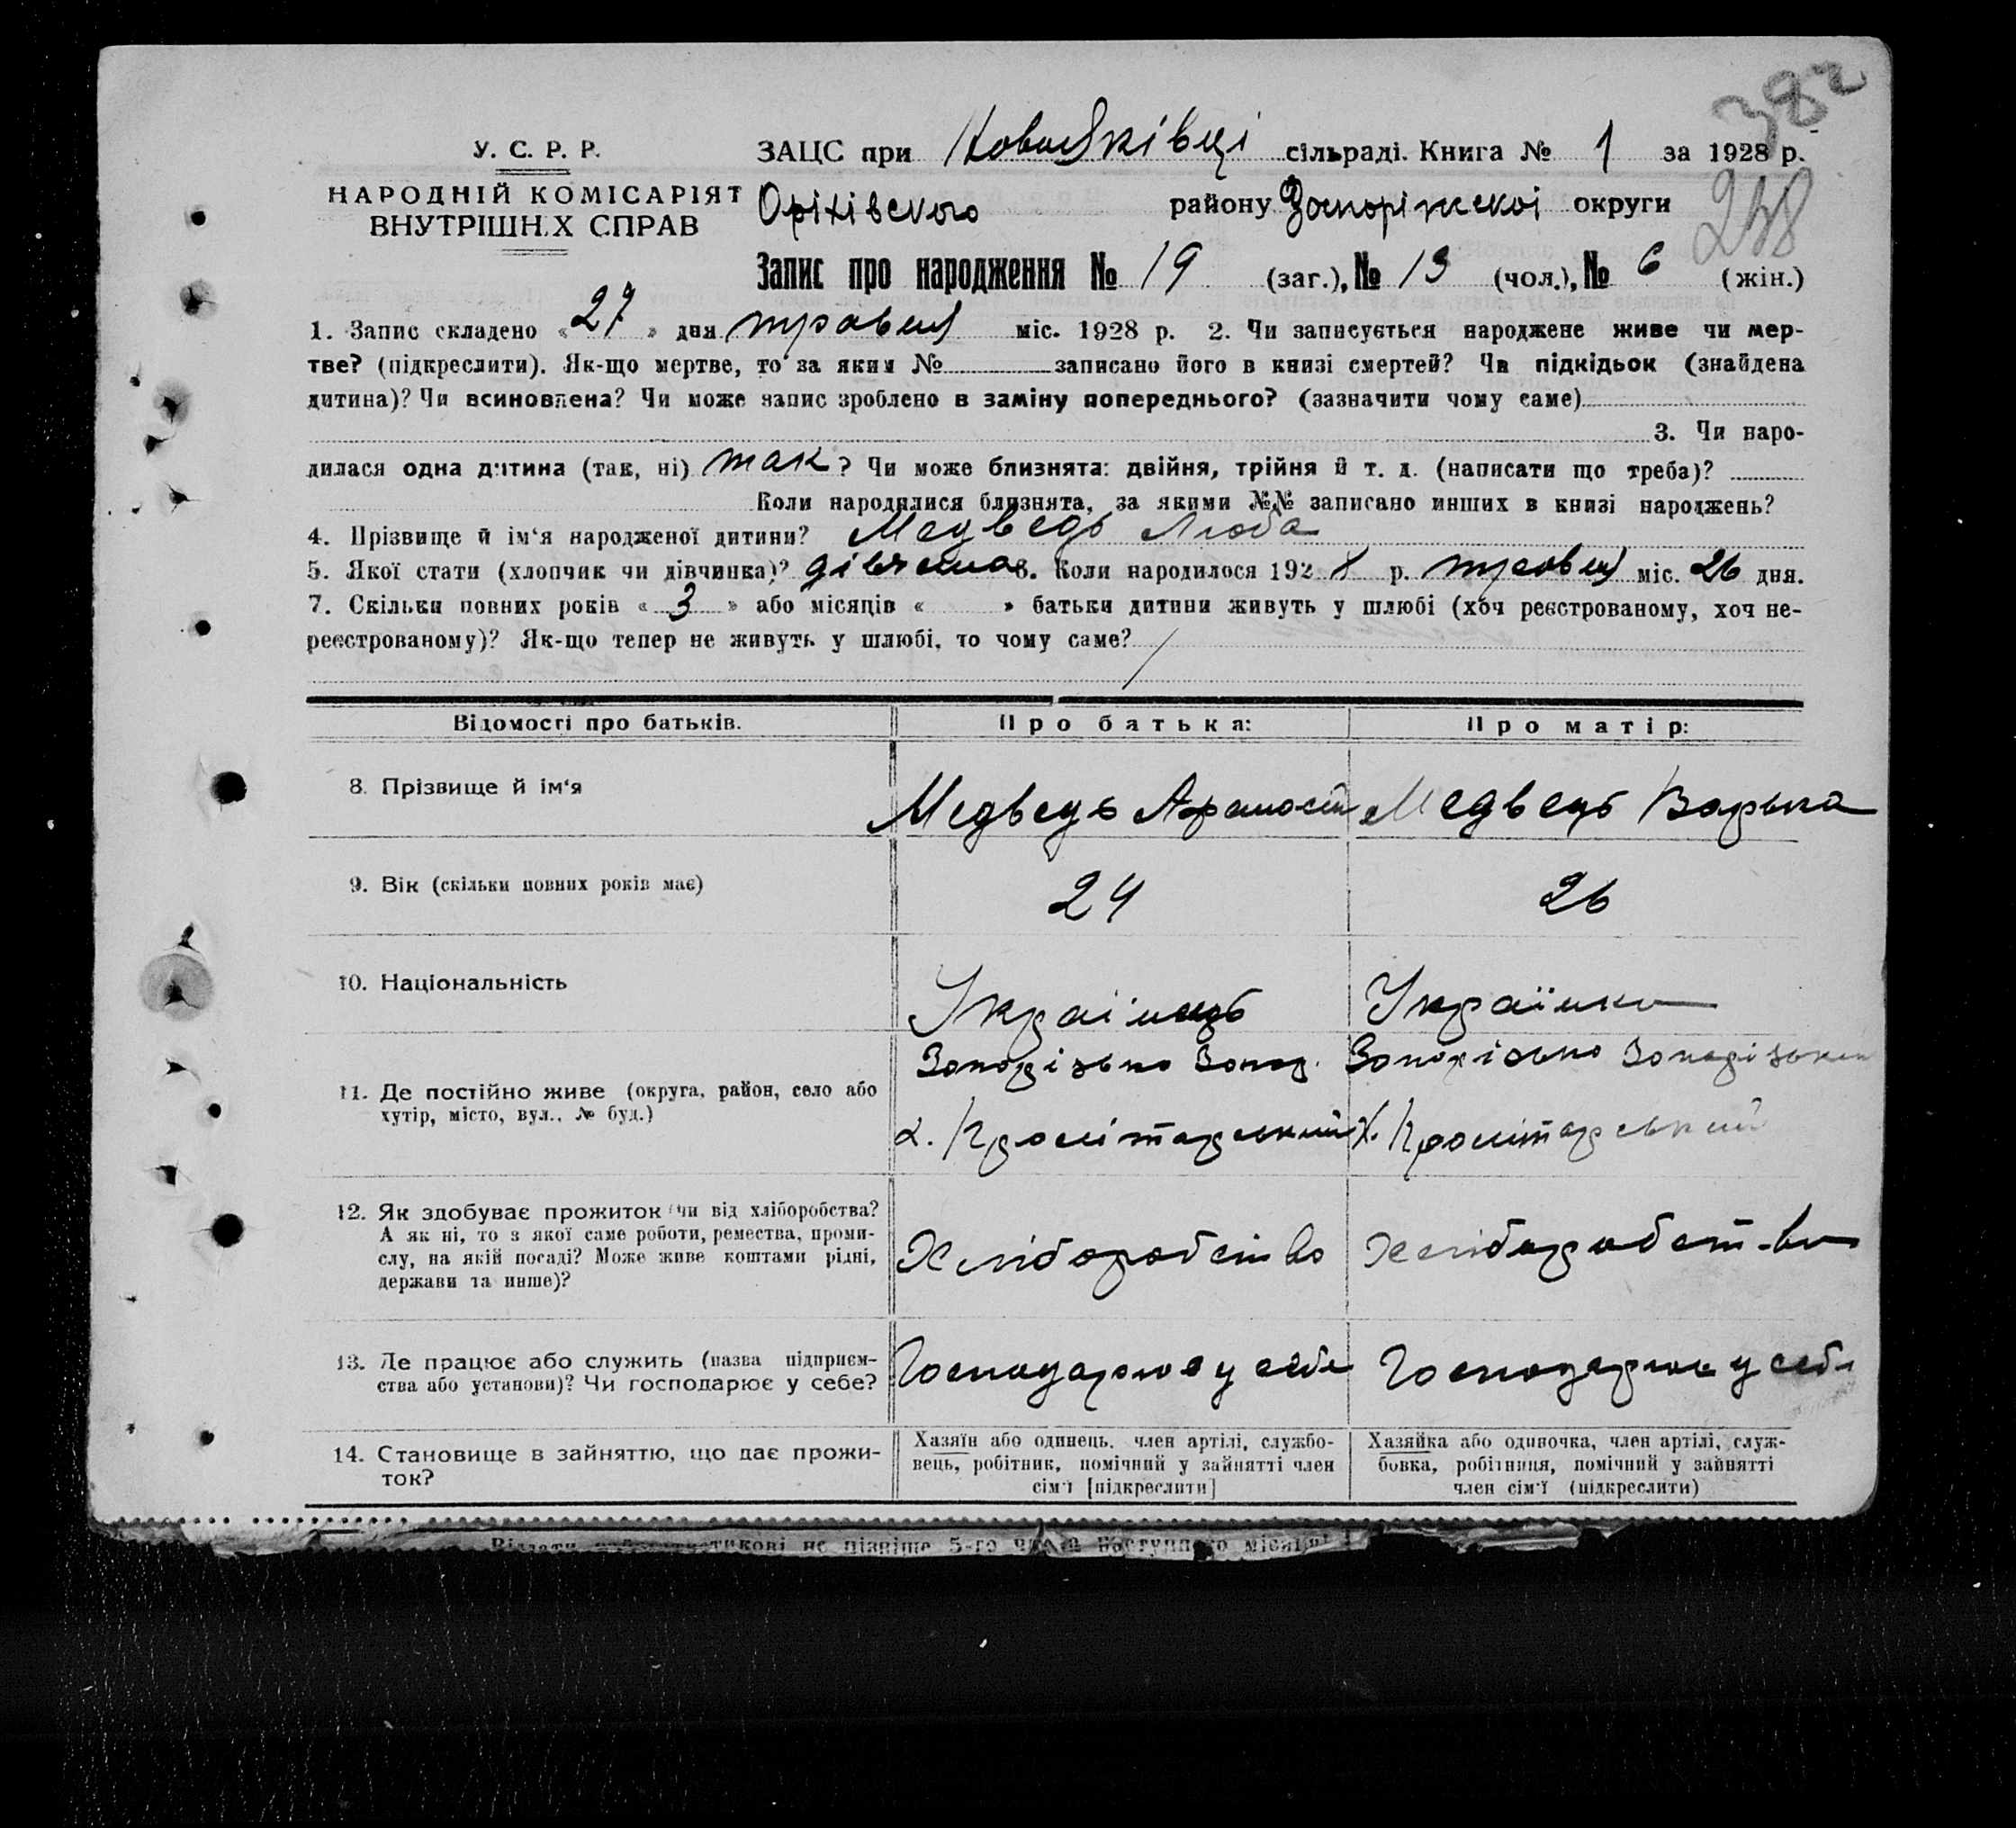 382
У. С. Р. Р.
НАРОДНІЙ КОМІСАРІЯТ
ВНУТРІШН.Х СПРАВ
ЗАЦС при НовоЯківці сільраді. Книга № 1 за 1928 р.
Оріхівского району Запоріжскоі округи
248
Запис про народження № 19 (заг.), № 13 (чол.), № 6 (жін.)
1. Запис складено « 27 » дня травня міс. 1928 р. 2. Чи записується народжене живе чи мер-
тве? (підкреслити). Як-що мертве, то за яким № записано його в книзі смертей? Чи підкідьок (знайдена
дитина)? Чи всиновлена? Чи може запис зроблено в заміну попереднього? (зазначити чому саме)
3. Чи наро-
дилася одна дитина (так, ні) так ? Чи може близнята: двійня, трійня й т. д. (написати що треба)?
Коли народилися близнята, за якими №№ записано инших в книзі народжень?
4. Прізвище й ім'я народженої дитини? Медведь Люба
5. Якої стати (хлопчик чи дівчинка)? дівчина 6. Коли народилося 192 8 р. травня міс. 26 дня.
7. Скільки повних років « 3 » або місяців « » батьки дитини живуть у шлюбі (хоч реєстрованому, хоч не-
реєстрованому)? Як-що тепер не живуть у шлюбі, то чому саме?
Відомості про батьків. Про батька: Про матір:
8. Прізвище й ім'я Медведь Медведь Варька
9. Вік (скільки повних років має) 24 26
10. Національність Українець Українка
11. Де постійно живе (округа, район, село або
хутір, місто, вул., № буд.)
х. Пролітарський х. Пролітарський
12. Як здобуває прожиток (чи від хліборобства?
А як ні, то з якої саме роботи, ремества, проми-
слу, на якій посаді? Може живе коштами рідні,
держави та инше)?
Хліборобство Хліборобство
13. Де працює або служить (назва підприєм-
ства або установи)? Чи господарює у себе?
Господарює у себе Господарює у себе
14. Становище в зайняттю, що дає прожи-
ток?
Хазяїн або одинець, член артілі, службо-
вець, робітник, помічний у зайнятті член
сім'ї [підкреслити]
Хазяйка або одиночка, член артілі, служ-
бовка, робітниця, помічний у зайнятті
член сім'ї (підкреслити)
не пізніше 5-го